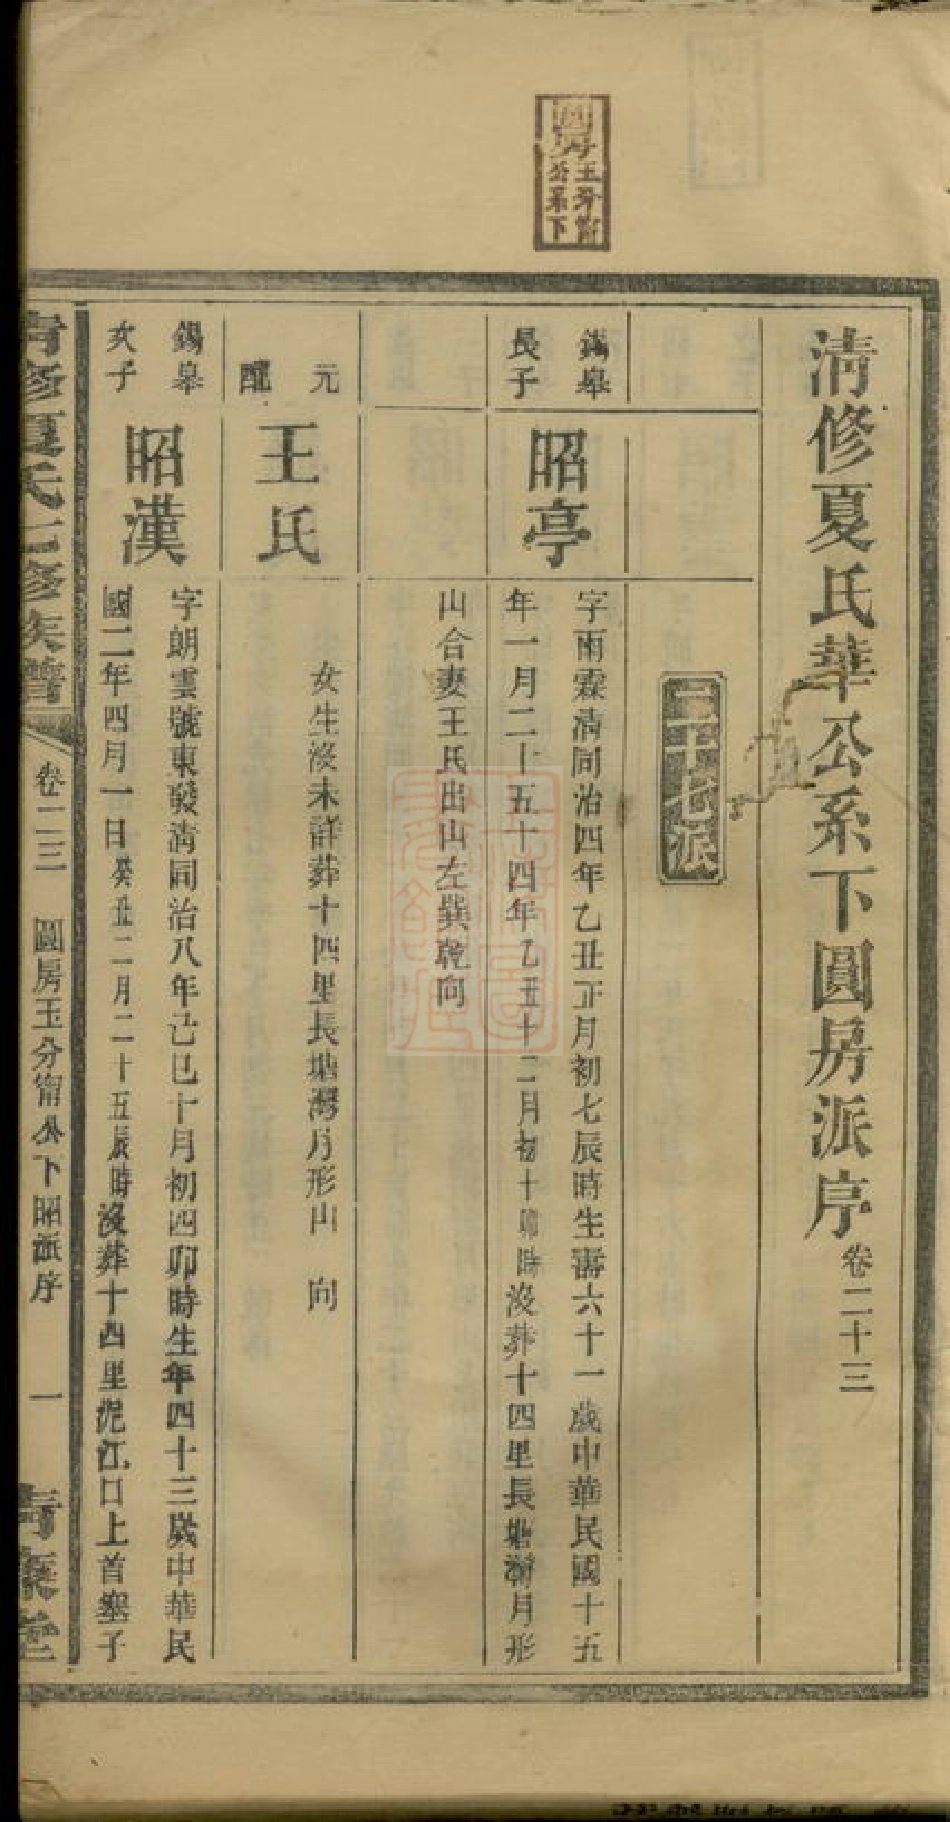 圓房玉分甯
公系下
清修夏氏華公系下圓房派序 卷二十三
錫皋
長子
昭亭
字雨霖清同治四年乙丑正月初七辰時生壽六十一歲中華民國十五
年一月二十五十四年乙丑十二月初十卯時沒葬十四里長塘灣月形
山合妻王氏出山左巽乾向
元
配
王氏
女生沒未詳葬十四里長塘灣月形山 向
錫皋
次子
昭漢
字朗雲號東發清同治八年己巳十月初四卯時生年四十三歲中華民
國二年四月一日癸丑二月二十五辰時沒葬十四里泥江口上首壟子
清修夏氏七修族譜
卷二三
圓房玉分甯公下昭派序
一